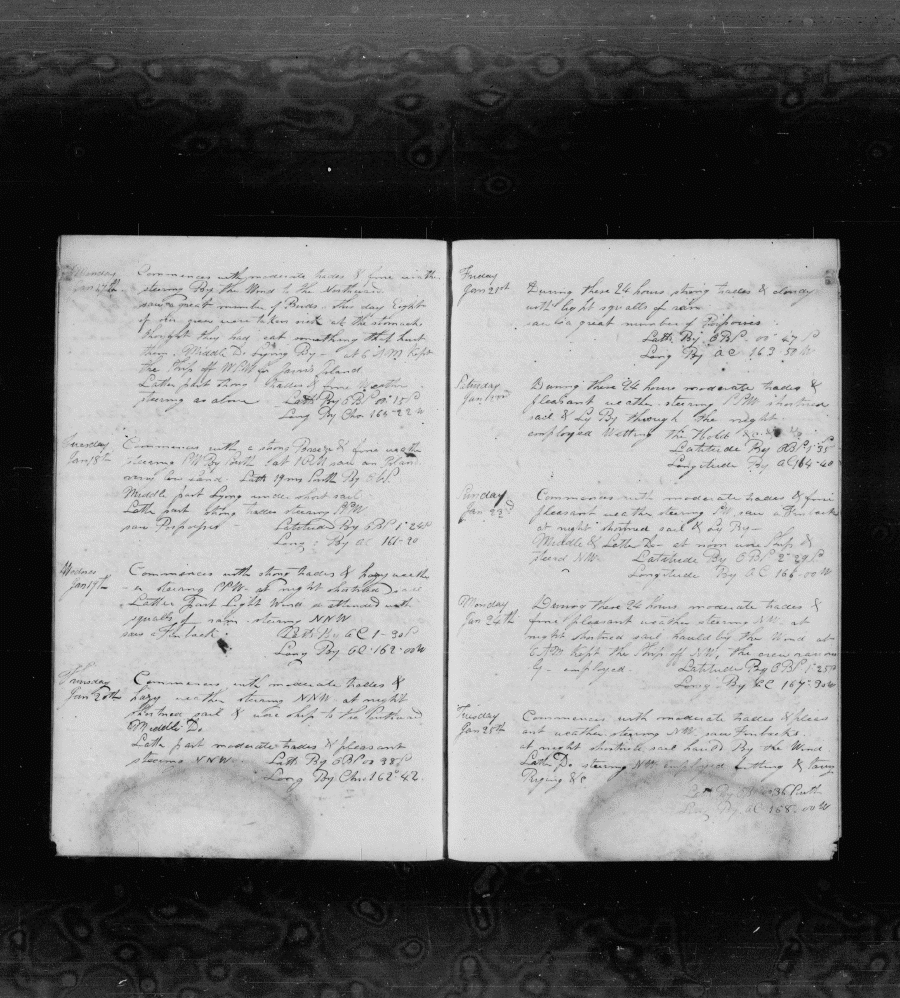 Monday Commences with moderate trades & fine weather
Jan 17th steering By the Wind to the Northward
saw a great number of Birds. this day Eight
of the were taken sick at the stomach
thought they had eat something that hurt
them. Middle Do Lying By - at 6 AM kept
the Ship off WNW for Island
Latter part strong trades & fine Weather
steering as above Latt By OBS 00°15 S
Long By Chro 163-22 W
Tuesday Commences with a strong Breeze & fine weather
Jan 18th steering By at 1 PM saw an Island
very low sand. Latt South By OBS
Middle part Lying under short sail
Latter part strong trades steering
saw Porposes Latitude By OBS 1°24 S
Long By OC 161-20
Wednes Commences with strong trades & hazy weath
Jan 19th er steering at night shortned sail
Latter Part Light Winds attended with
squalls of rain steering NNW
saw a Finback Latt By OC 1-30 S
Long By OC 162-00 W
Thursday Commences with moderate trades &
Jan 20th hazy weather steering NNW at night
shortned sail & wore ship to the Eastward
Middle Do
Latter part moderate trades & pleasant
steering NNW Latt By OBS 00 38 S
Long By Chro 162°42
Friday
Jan 21st During these 24 hours strong trades & cloudy
with light squalls of rain
saw a great number of Porposes
Latt By OBS 00 47 S
Long By OC 163 50 W
Saturday During these 24 hours moderate trades &
Jan 22nd pleasant weather steering shortned
sail & Ly By through the night
employed Wetting the Hold
Latitude By OBS 1°35
Longitude By OC 164-40
Sunday Commences with moderate trades & fine
Jan 23rd pleasant weather steering saw a Finback
at night shortned sail & Ly By -
Middle & Latter Do at noon wore Ship &
steerd NW. Latatude By OBS 2°29 S
Longitude By OC 166-00 W
Monday During these 24 hours moderate trades &
Jan 24th fine pleasant weather steering NW at
night shortned sail hauld by the Wind at
6 AM kept the Ship off NW, the crew various
ly employed. Latitude By OBS 1°25 S
Long By OC 167-30 W
Tuesday Commences with moderate trades & pleas
Jan 25th ant weather steering NW saw Finbacks
at night shortnd sail hauld By the Wind
Latter Do steering NW employed &
Riging &c
Latt By South
Long By OC 168-00 W